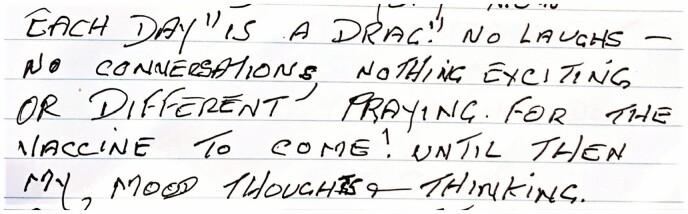 EACH DAY" IS A DRAG!" NO LAUGHS —
NO CONVERSATIONS, NOTHING EXCITING
OR DIFFERENT' PRAYING. FOR THE
VACCINE TO COME! UNTIL THEN
MY, MOOD THOUGHTS & THINKING.